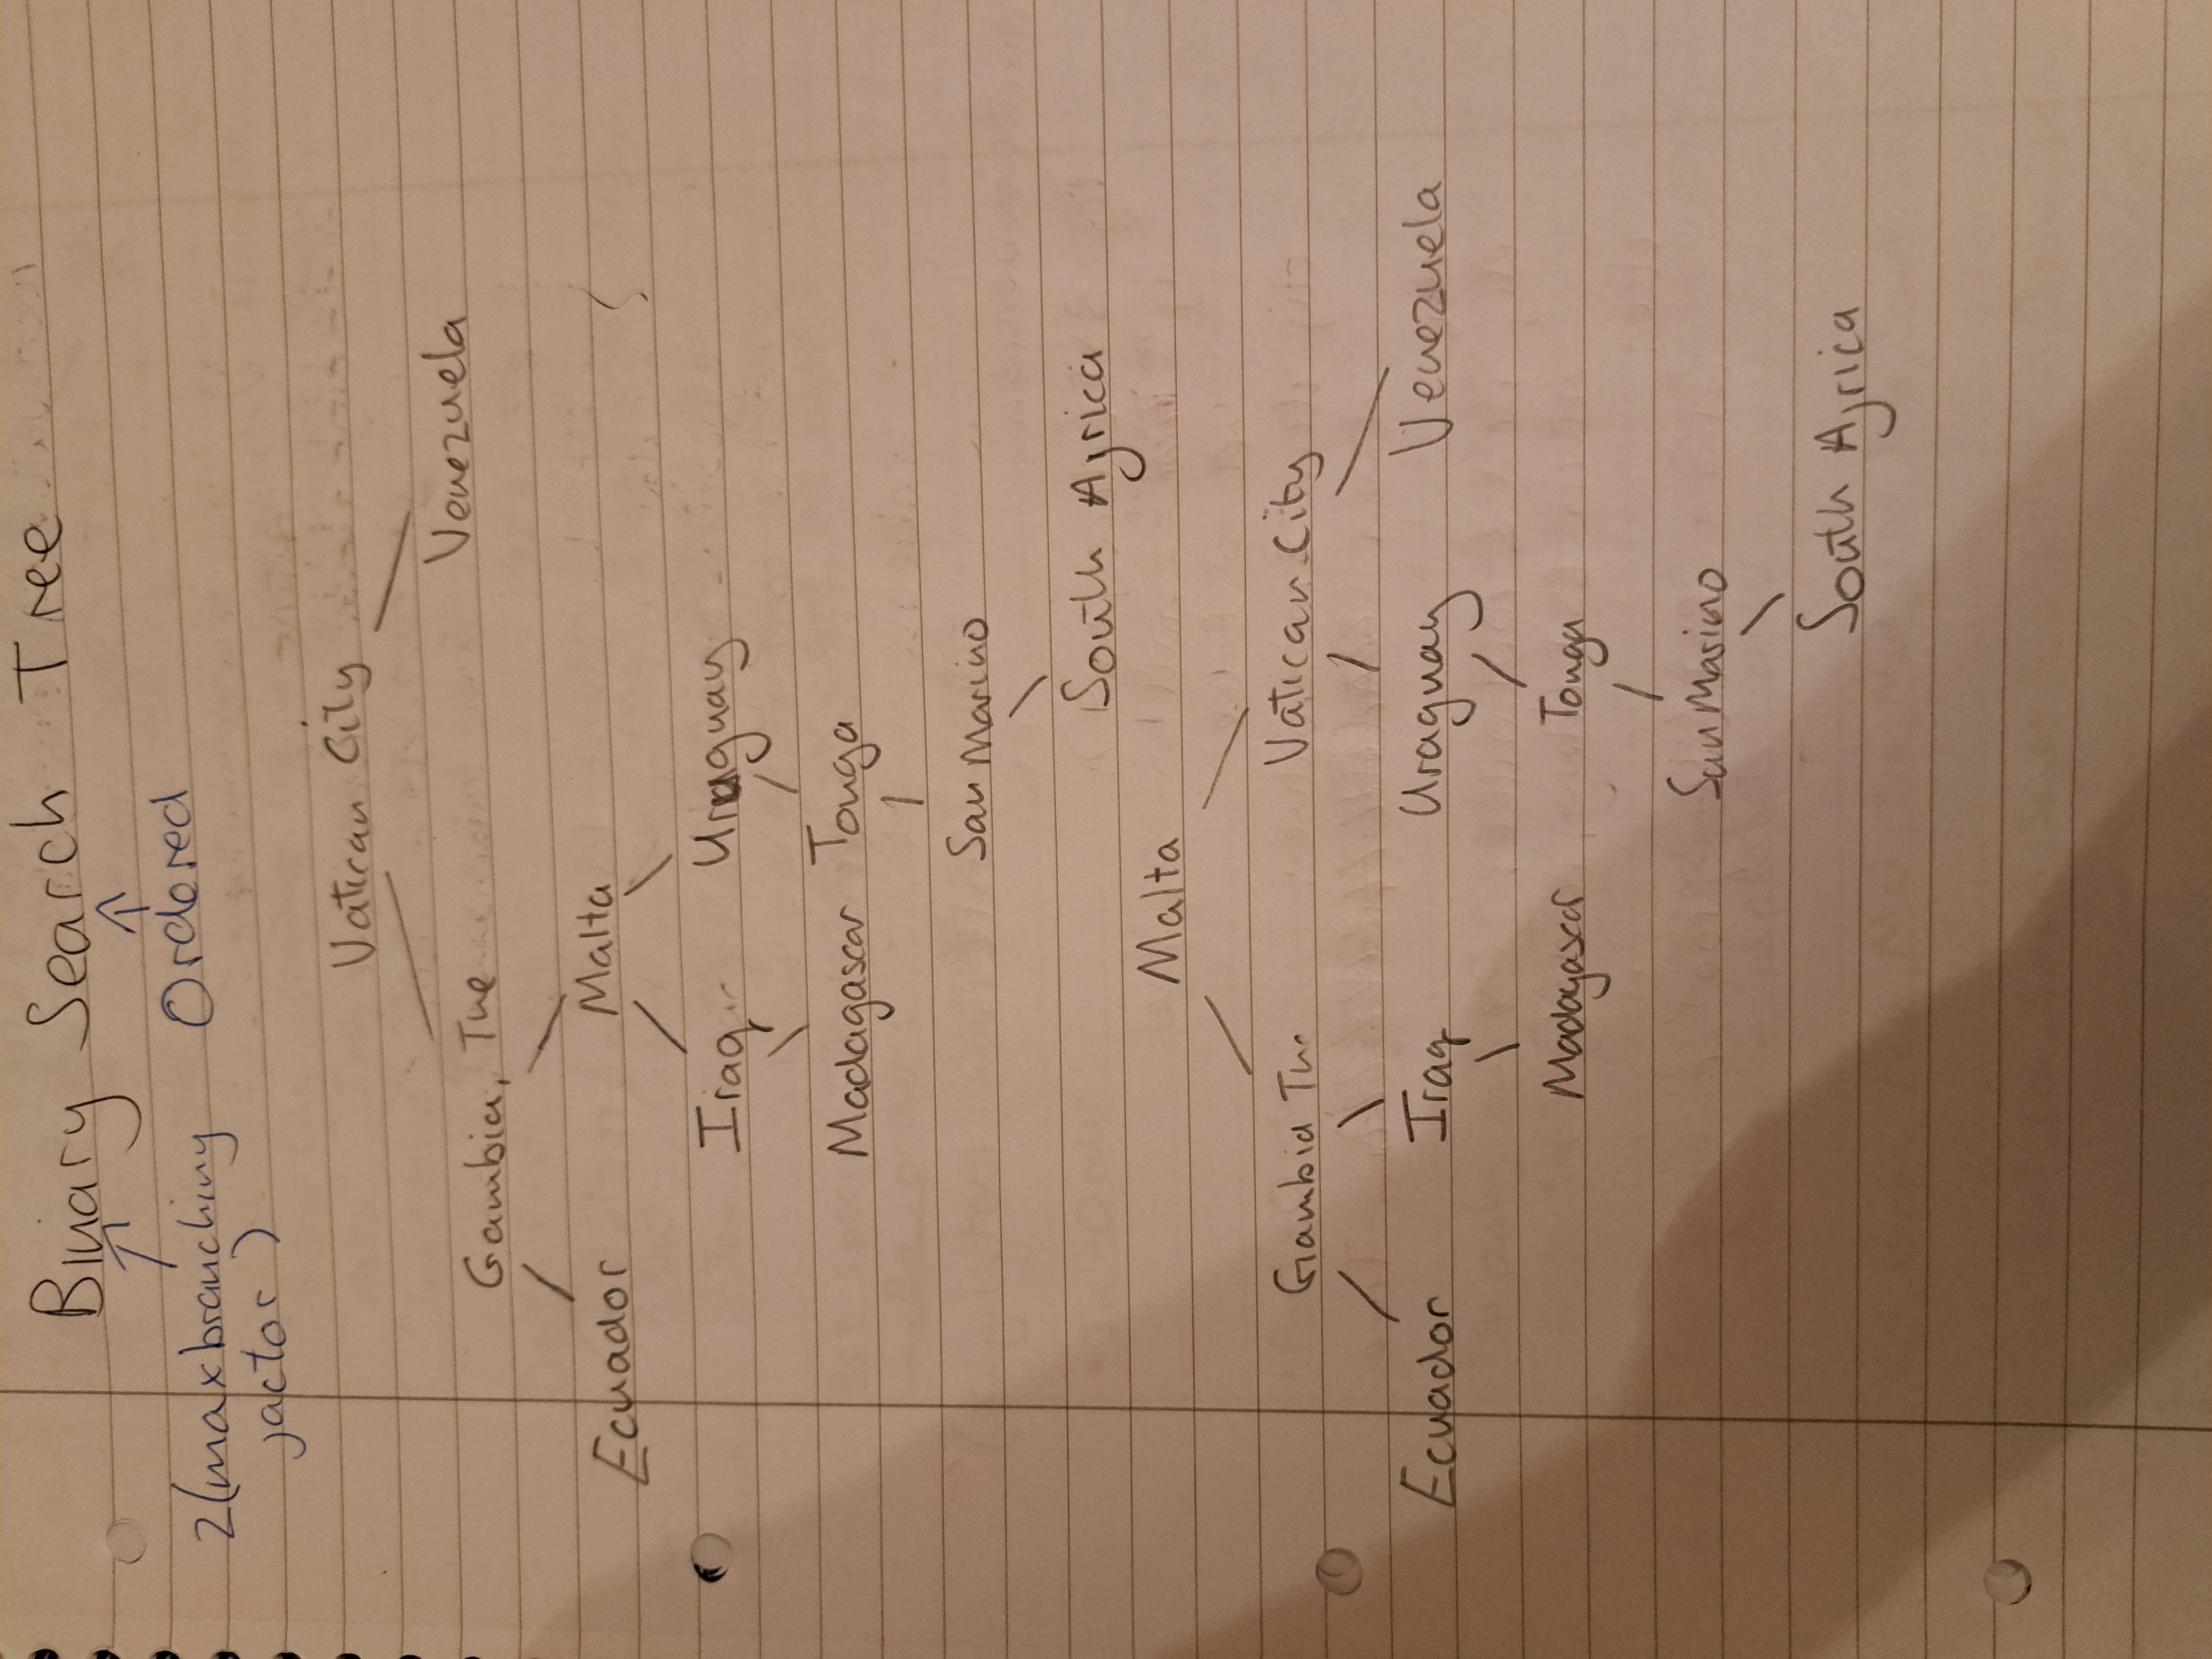 Binary Search Tree
2(max branching Ordered
factor)
Vatican City
Venezuela
Gambia, The
Ecuador Malta
Iraq Uruguay
Madagascar Tonga
San Marino
South Africa
Malta
Gambia The Vatican City
Ecuador Iraq Uraguay Venezuela
Madagascar Tonga
San Marino
South Africa